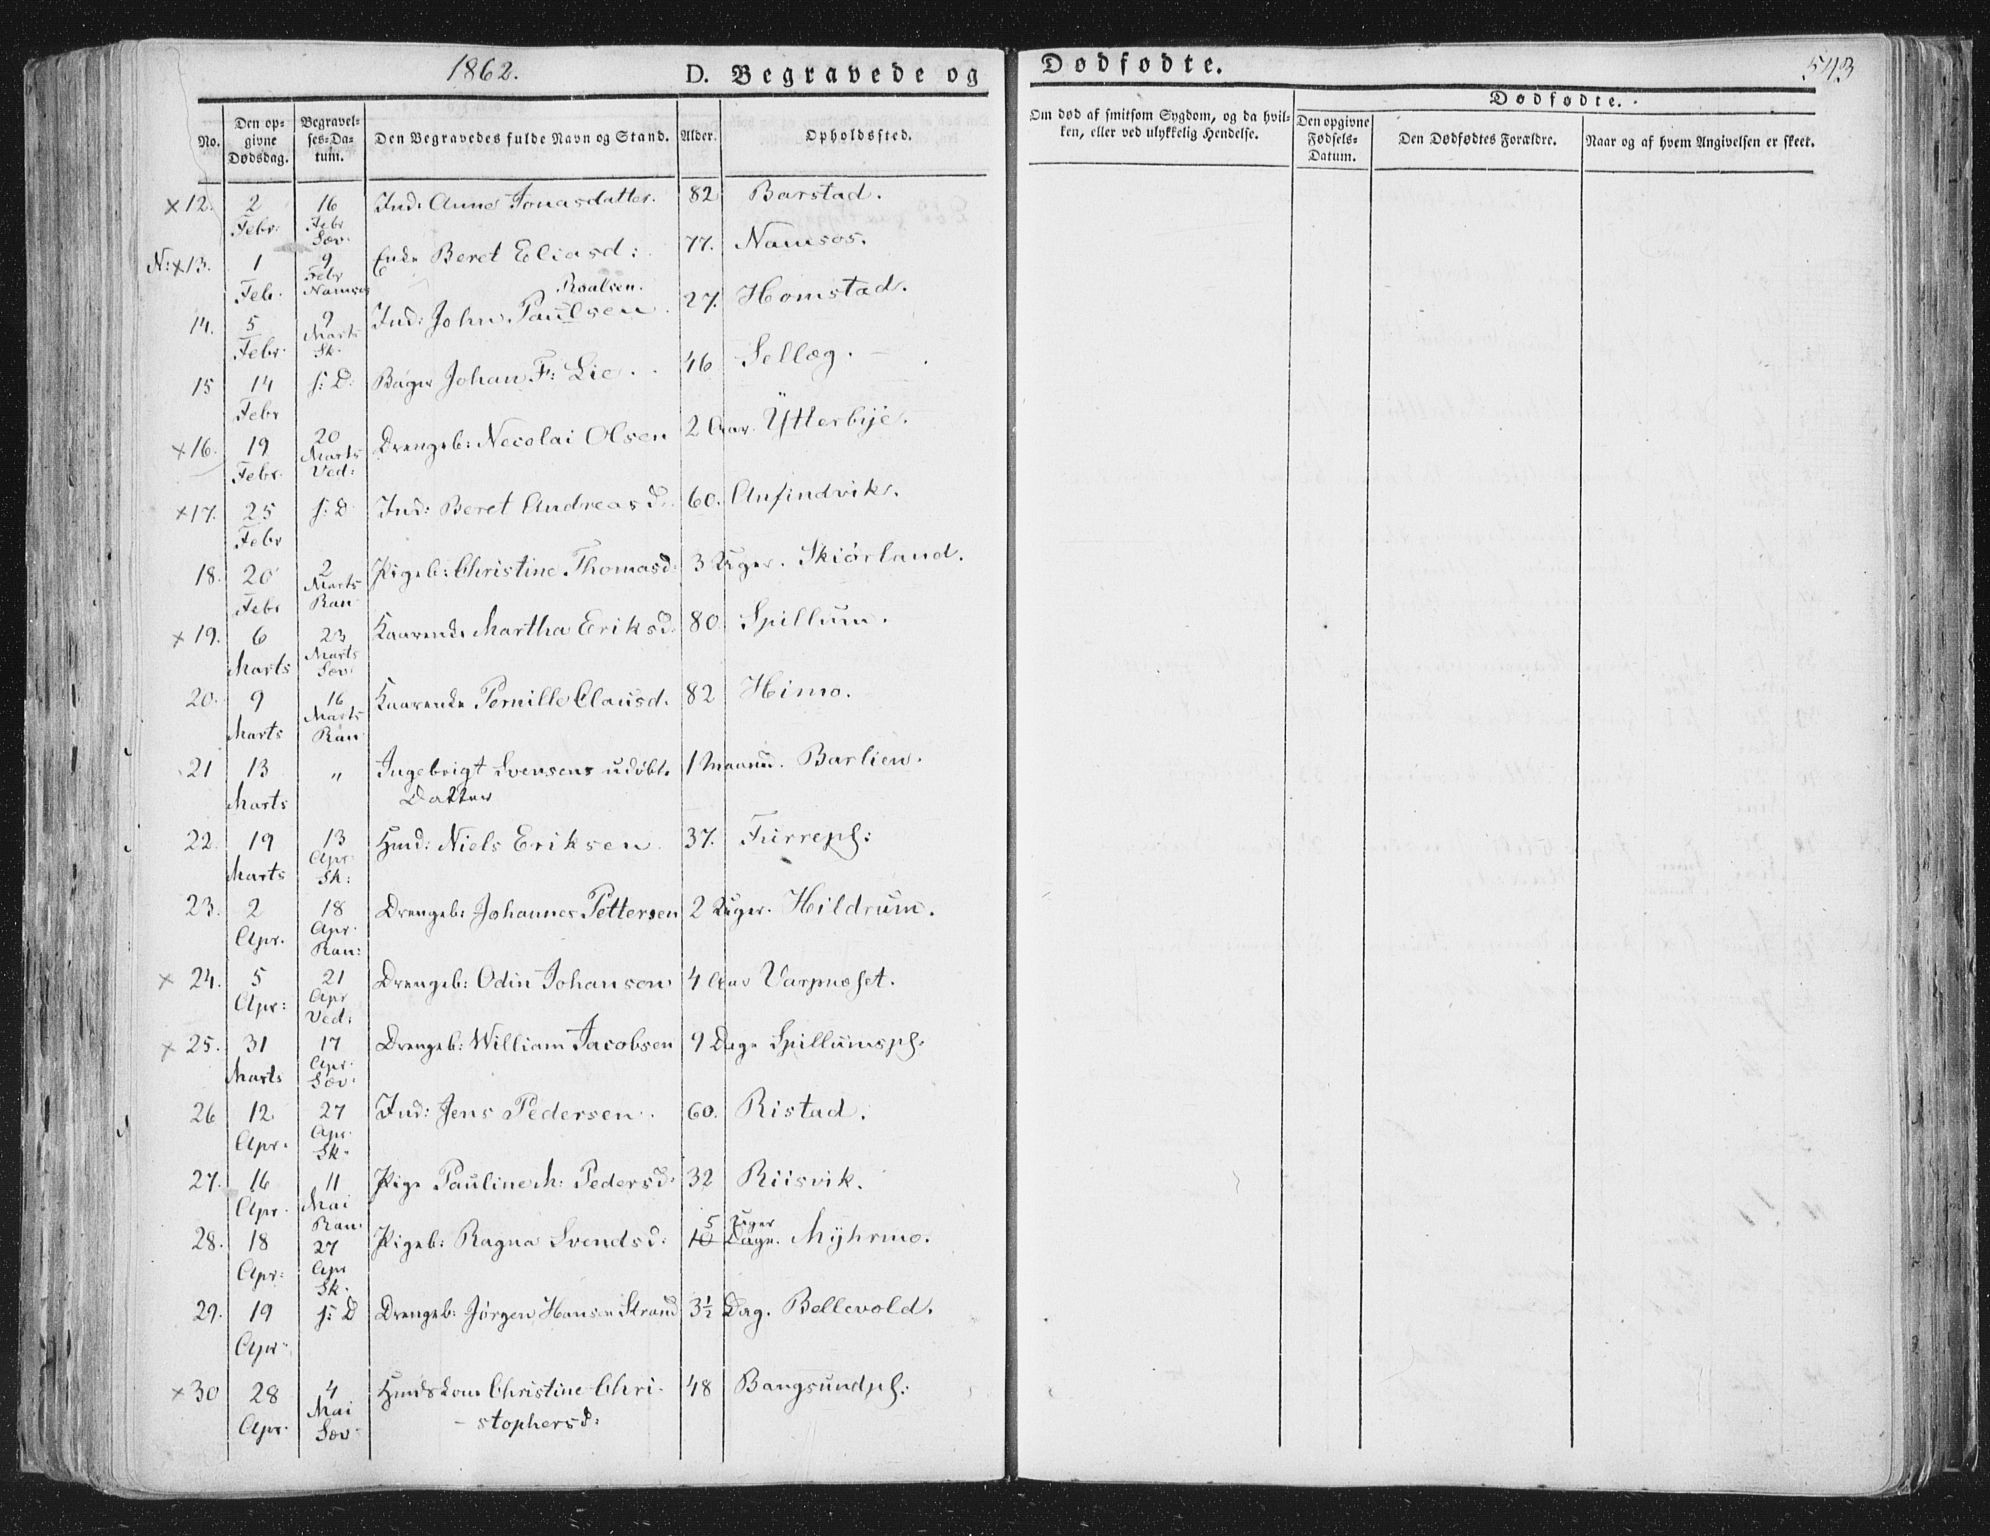 1862.
D. Begravede og
Dødfødte.
543
No.
Den op-
givne
Dødsdag.
Begravel-
ses-Da-
tum.
Den Begravedes fulde Navn og Stand.
Alder.
Opholdssted.
Om død af smitsom Sygdom, og da hvil-
ken, eller ved ulykkelig Hendelse.
Dødfødte.
Den opgivne
Fødsels-
Datum.
Den Dødfødtes Forældre.
Naar og af hvem Angivelsen er skeet.
x 12. 2 Febr. 16 Febr Sæv. Ind: Anne Jonasdatter. 82 Barstad.
N: x 13. 1 Feb. 9 Febr Namsos Enke Beret Eliasd: 77. Namsos.
14. 5 Febr. 9 Marts Sk. Ind: John Paulsen. 27. Homstad.
15 14 Febr s: D: Bøger Johan F: Lie. 46 Sellæg.
x 16. 19 Febr. 20 Marts Ved: Drengeb: Necolai Olsen 2 Aar. Ytterbye.
x 17. 25 Febr s: D Ind: Beret Andreasd: 60. Anfindvik.
18. 20 Febr 2 Marts Ran Pigeb: Christine Thomasd: 3 Uger. Skiørland.
x 19. 6 Marts 23 Marts Sæv Kaarenke Martha Eriksd. 80 Spillum.
20. 9 Marts 16 Marts Ran Kaarenke Pernille Clausd. 82 Himo.
21 13 Marts " Ingebrigt Svensens udøbt. 1 Maaned. Barlien.
Datter
22. 19 Marts 13 Apr Sk: Hmd: Niels Eriksen. 37. Furrepl:
23. 2 Apr. 18 Apr. Ran: Drengeb: Johannes Pettersen 2 Uger. Heildrum.
x 24. 5 Apr: 21 Apr Ved: Drengeb: Odin Johansen 4 Aar Varpneset.
x 25. 31 Marts 17 Apr. Sæv. Drengeb: William Jacobsen 9 Dage Spillumspl.
26 12 Apr. 27 Apr. Sk. Ind: Jens Pedersen. 60. Ristad.
27. 16 Apr. 11 Mai Ran: Pige Pauline M: Pedersd. 32 Riisvik.
28. 18 Apr: 27 Apr Sk. Pigeb: Ragna Svendsd: 10 Dage. 5 Uger Myhrmo.
29. 19 Apr. s: D Drengeb: Jørgen Hansen Strand 3½ Dag. Bellevold.
x 30 28 Apr. 4 Mai Sæv Hmdskone Christine Chri- 48 Bangsundpl:
- stophersd: